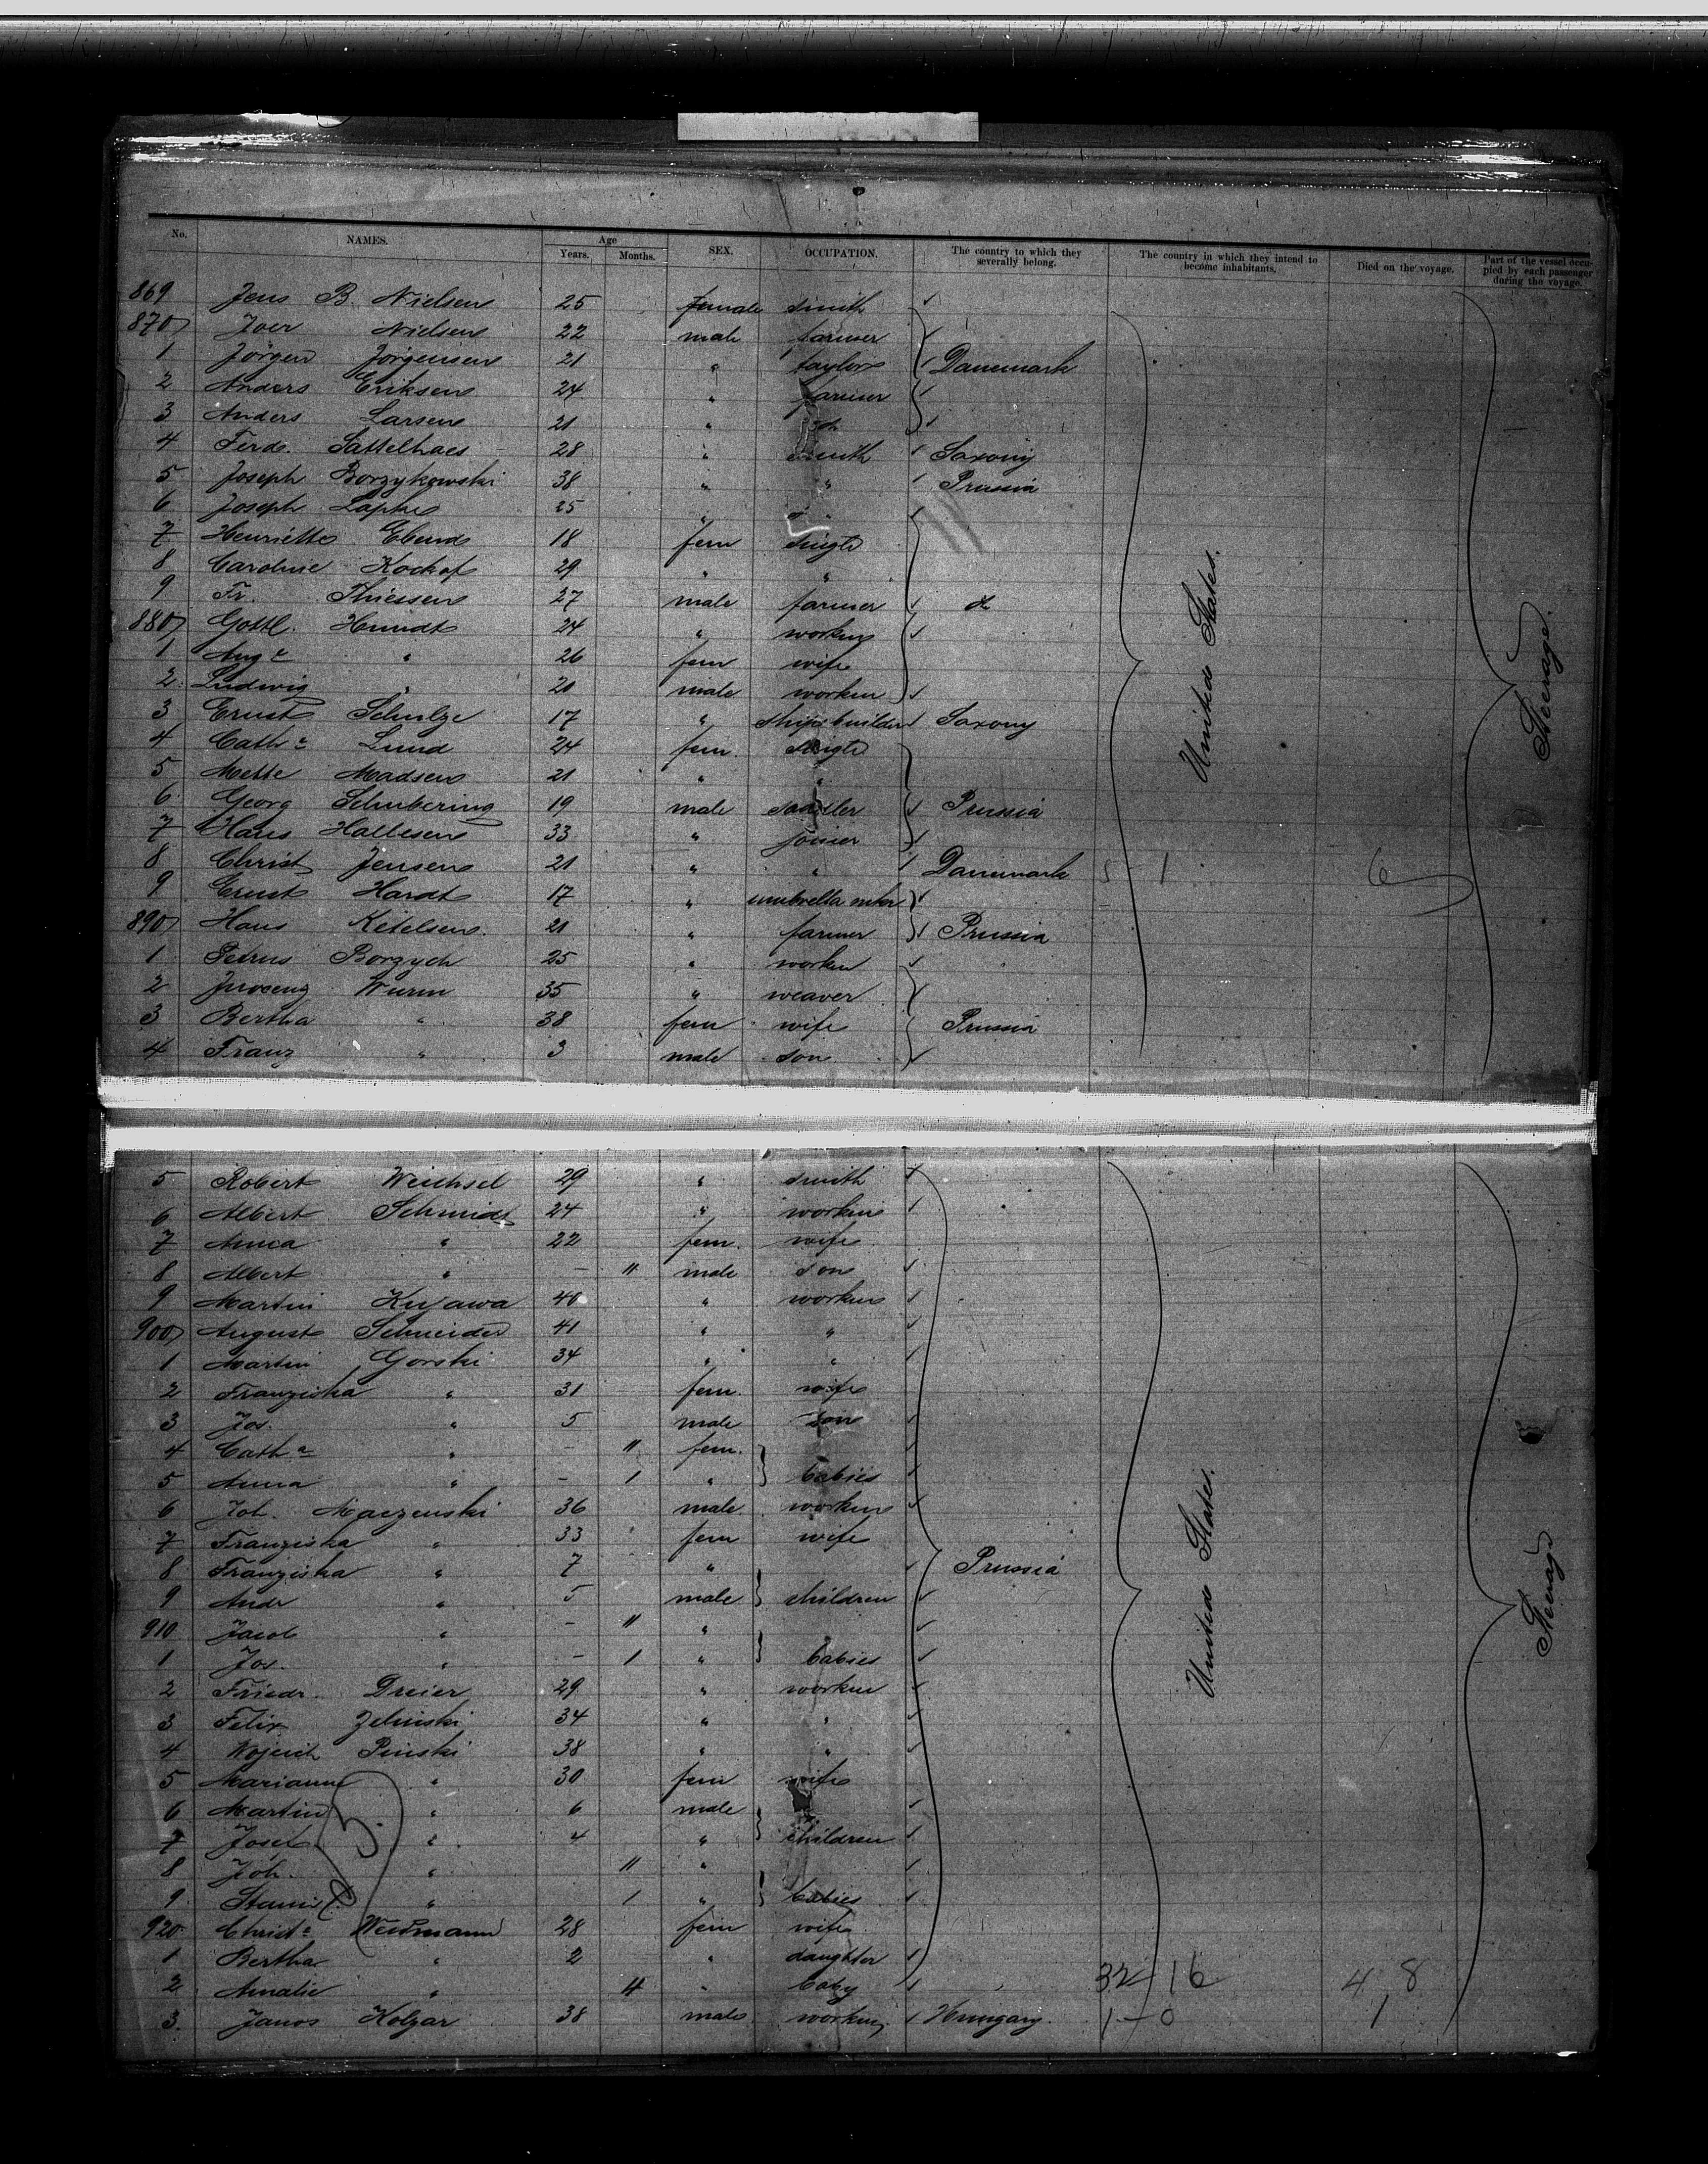 No. NAMES. Age Years. Months. SEX. OCCUPATION. The country to which they severally belong. The country in which they intend to become inhabitants. Died on the voyage. Part of the vessel occupied by each passenger during the voyage.
869 Jens B. Nielsen 25 female smith
870 Joer Nielsen 22 male farmer
1 Jörgen Jörgensen 21 " taylor Danemark
2 Anders Eriksen 24 " farmer
3 Anders Larsen 21 "
4 Ferd. Sattelhaes 28 " smith Saxony
5 Joseph Borzykowski 38 " " Prussia
6 Joseph 25 " "
7 Henriette 18 fem single
8 Caroline 29 " "
9 Fr. Thiessen 27 male farmer
880 Gottl. Hundt 24 " worken
1 Auge " 26 fem wife
2 Ludwig " 20 male worken
3 Ernst Schulze 17 " shipsbuilder Saxony
4 Cathe Lund 24 fem. single
5 Mette Madsen 21 " "
6 Georg Schubering 19 male Prussia
7 Hans Hallesen 33 " joiner
8 Christ Jensen 21 " " Danemark 5 - 1 6
9 Ernst Hardt 17 " umbrella mker
890 Hans Ketelsen 21 " farmer Prussia
1 Petrus Borzych 25 " worken
2 Wurm 35 " weaver
3 Bertha " 38 fem wife Prussia
4 Franz " 3 male son
United States.
Steerage.
5 Robert Weichsel 29 " smith
6 Albert Schmidt 24 " worken
7 Anna " 22 fem. wife
8 Albert " - 11 male son
9 Martin Kujawa 40 " worken
900 August Schneider 41 " "
1 Martin Gorski 34 " "
2 Franziska " 31 fem. wife
3 Jos. " 5 male son
4 Cathe " - 11 fem.
5 Anna " - 1 " babies
6 Joh. Maczenski 36 male worken
7 Franziska " 33 fem wife
8 Franziska " 7 " Prussia
9 Andr " 5 male children
910 Jacob " - 11 "
1 Jos. " - 1 " babies
2 Friedr. Dreier 29 " worken
3 Felix Zelinski 34 " "
4 Wojcich Pinski 38 " "
5 Marianne " 30 fem wife
6 Martin " 6 male
7 Josef " 4 " children
8 Joh. " 11 "
9 " 1 " babies
920 Christe Weidmann 28 fem wife
1 Bertha " 2 " daughter
2 Amalie " 4 " baby 32 - 16 4 8
3. Janos Kolzar 38 male worken Hungary. 1 - 0 1
United States.
Steerage